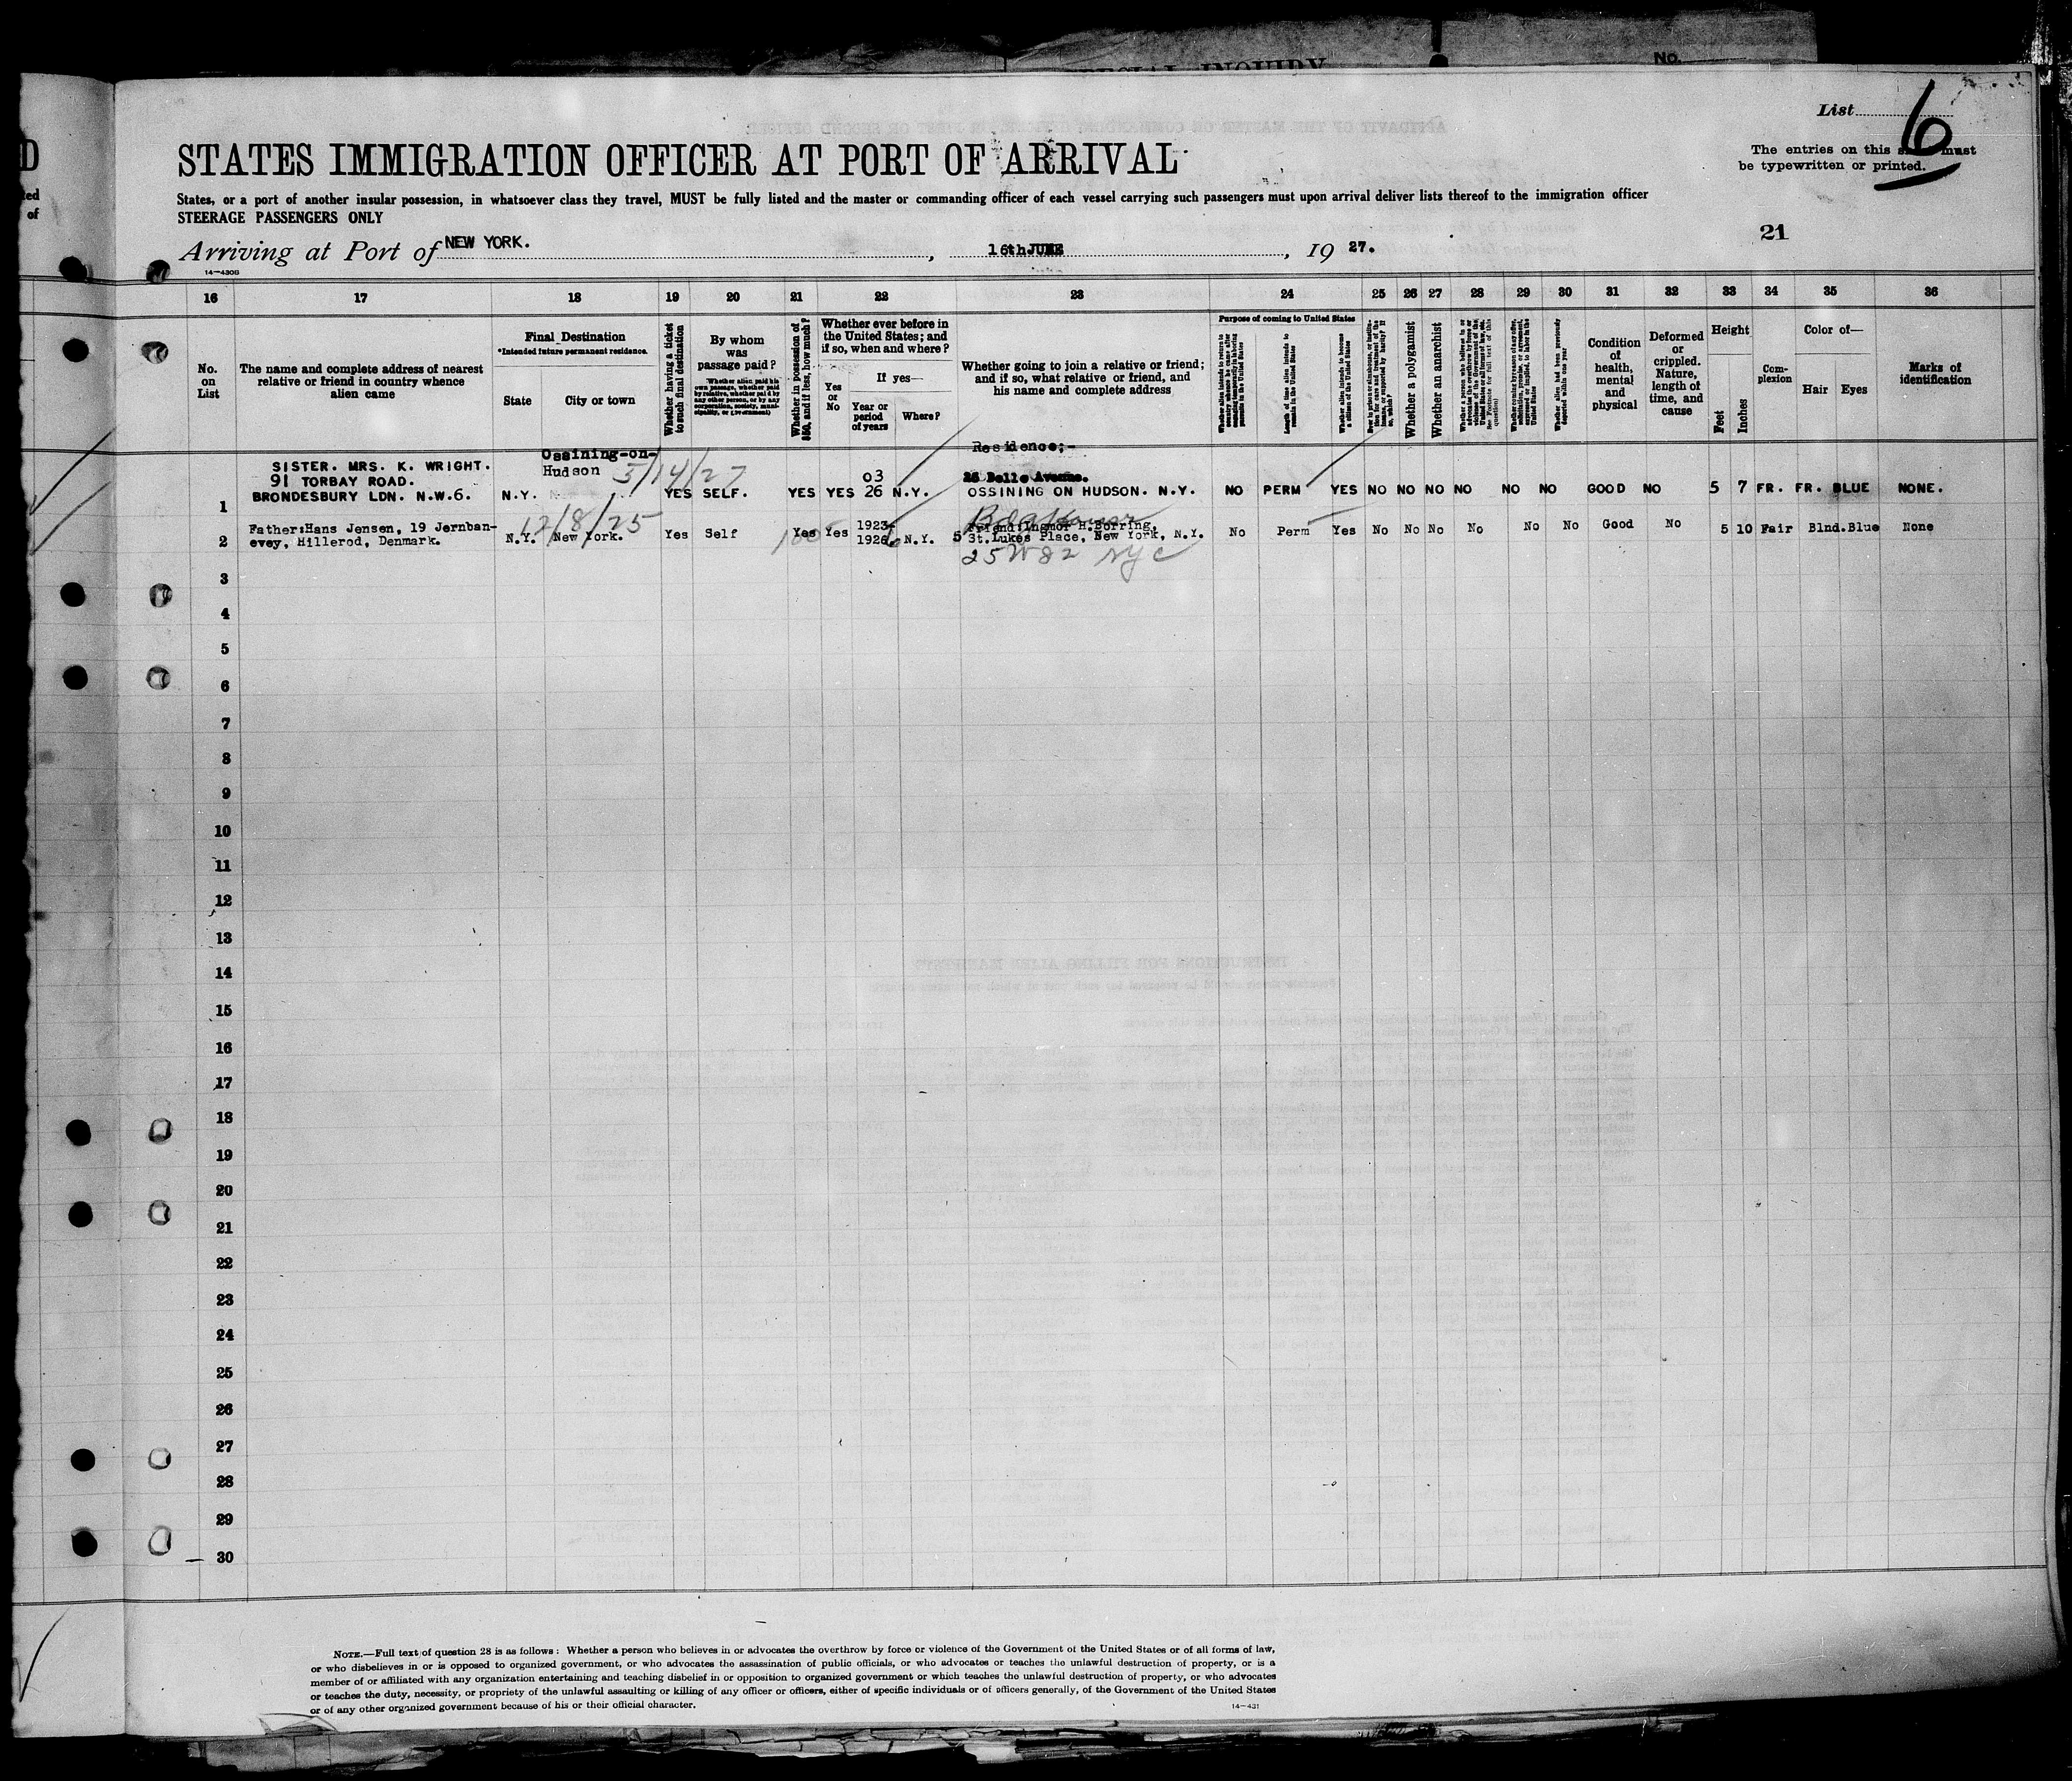 SPECIAL INQUIRY
No.
List 6
STATES IMMIGRATION OFFICER AT PORT OF ARRIVAL
The entries on this must
be typewritten or printed.
States, or a port of another insular possession, in whatsoever class they travel, MUST be fully listed and the master or commanding officer of each vessel carrying such passengers must upon arrival deliver lists thereof to the immigration officer
STEERAGE PASSENGERS ONLY
21
Arriving at Port of NEW YORK. , 16th JUNE , 19 27.
14—430B
16 17 18 19 20 21 22 23 24 25 26 27 28 29 30 31 32 33 34 35 36
No.
on
List
The name and complete address of nearest
relative or friend in country whence
alien came
Final Destination
*Intended future permanent residence.
State
City or town
Whether having a ticket
to such final destination
By whom
was
passage paid?
Whether in possession of
$50, and if less, how much?
Whether ever before in
the United States; and
if so, when and where?
Yes
or
No
If yes—
Year or
period
of years
Where?
Whether going to join a relative or friend;
and if so, what relative or friend, and
his name and complete address
Purpose of coming to United States
Length of time alien intends to
remain in the United States
Whether alien intends to become
a citizen of the United States
Whether a polygamist
Whether an anarchist
Condition
of
health,
mental
and
physical
Deformed
or
crippled.
Nature,
length of
time, and
cause
Height
Feet
Inches
Com-
plexion
Color of—
Hair
Eyes
Marks of
identification
Residence;-
Ossining-on-
Hudson
5/14/27
SISTER. MRS. K. WRIGHT.
91 TORBAY ROAD.
BRONDESBURY LDN. N.W.6.
1 N.Y. YES SELF. YES YES 03 26 N.Y. OSSINING ON HUDSON. N.Y. NO PERM YES NO NO NO NO NO NO GOOD NO 5 7 FR. FR. BLUE NONE.
12/8/25
Father:Hans Jensen, 19 Jernban-
evey, Hillerod, Denmark.
2 N.Y. New York. Yes Self Yes Yes 1923- 1926 N.Y. Friend:Ingmor H.Borring,
5 St.Lukes Place, New York, N.Y. No Perm Yes No No No No No No Good No 5 10 Fair Blnd. Blue None
25 W 82 NYC
3
4
5
6
7
8
9
10
11
12
13
14
15
16
17
18
19
20
21
22
23
24
25
26
27
28
29
30
NOTE.—Full text of question 28 is as follows: Whether a person who believes in or advocates the overthrow by force or violence of the Government of the United States or of all forms of law,
or who disbelieves in or is opposed to organized government, or who advocates the assassination of public officials, or who advocates or teaches the unlawful destruction of property, or is a
member of or affiliated with any organization entertaining and teaching disbelief in or opposition to organized government or which teaches the unlawful destruction of property, or who advocates
or teaches the duty, necessity, or propriety of the unlawful assaulting or killing of any officer or officers, either of specific individuals or of officers generally, of the Government of the United States
or of any other organized government because of his or their official character.
14—431